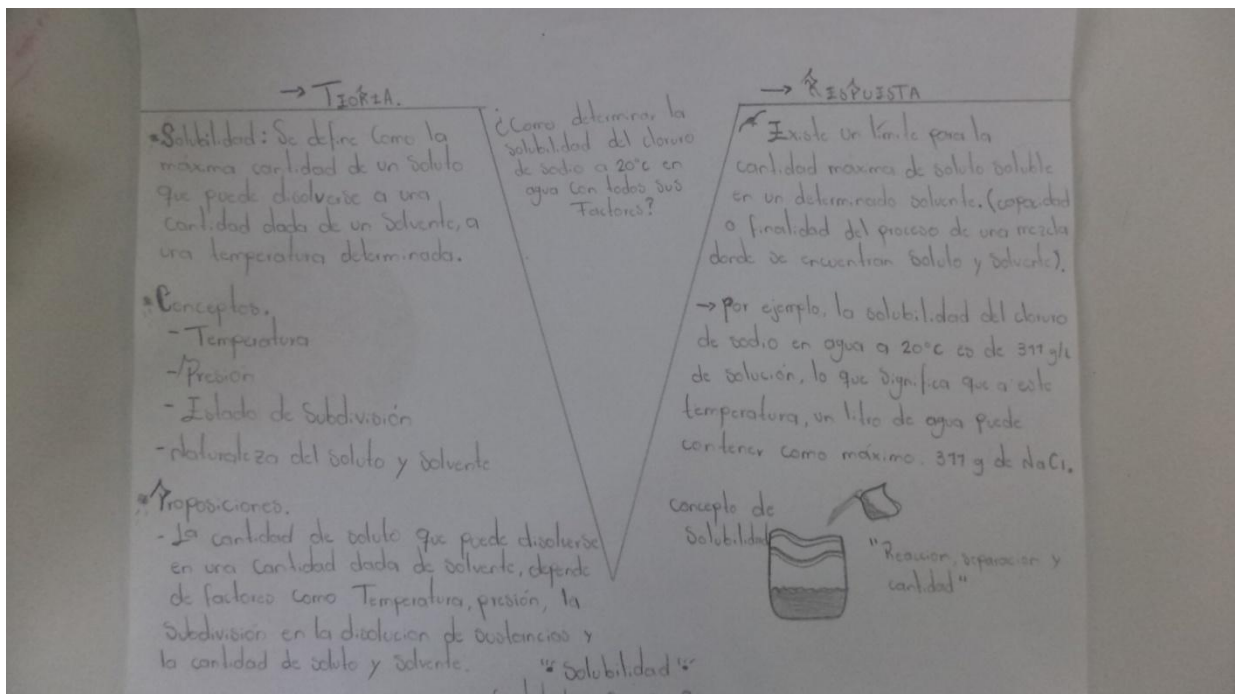 → TEORIA.
• Solubilidad: Se define como la
máxima cantidad de un soluto
que puede disolverse a una
cantidad dada de un solvente, a
una temperatura determinada.
• Conceptos.
- Temperatura
- Presión
- Estado de Subdivisión
- Naturaleza del soluto y solvente
• Proposiciones.
- La cantidad de soluto que puede disolverse
en una cantidad dada de solvente, depende
de factores como Temperatura, presión, la
Subdivisión en la disolucion de sustancias y
la cantidad de soluto y solvente.
¿Como determinar la
solubilidad del cloruro
de sodio a 20°c en
agua con todos sus
Factores?
"Solubilidad"
→ RESPUESTA
Existe un límite para la
cantidad maxima de soluto soluble
en un determinado solvente. (capacidad
o finalidad del proceso de una mezcla
donde se encuentran soluto y solvente).
→ Por ejemplo, la solubilidad del cloruro
de sodio en agua a 20°c es de 311 g/L
de solución, lo que significa que a esta
temperatura, un litro de agua puede
contener como máximo. 311 g de NaCl.
concepto de
Solubilidad
"Reaccion, separacion y
cantidad"